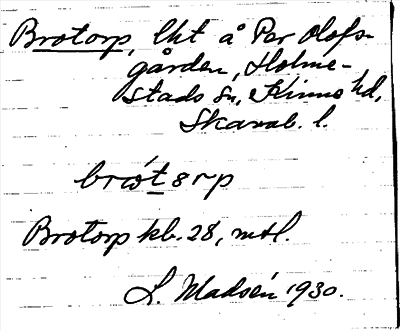 Brotorp, lht å Per Olofs-
gården, Holme-
stads sn, Kinne hd,
Skarab. l.
Brotorp kb. 28, mtl.
L. Madsén 1930.